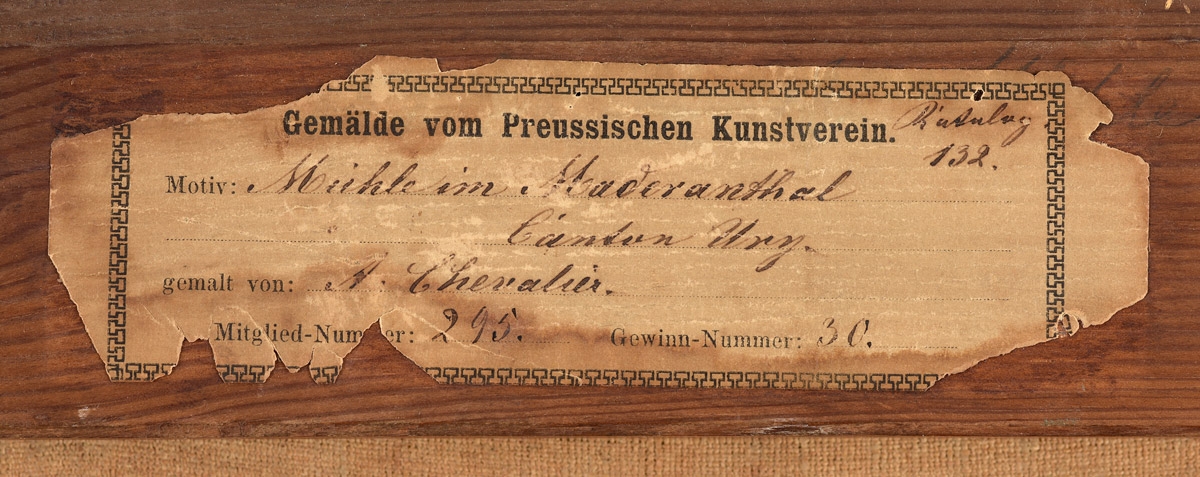 Gemälde vom Preussischen Kunstverein.
Katalog
132.
Motiv: Mühle im Maderanthal
Canton Ury.
gemalt von: A. Chevalier.
Mitglied-Nummer: 295. Gewinn-Nummer: 30.